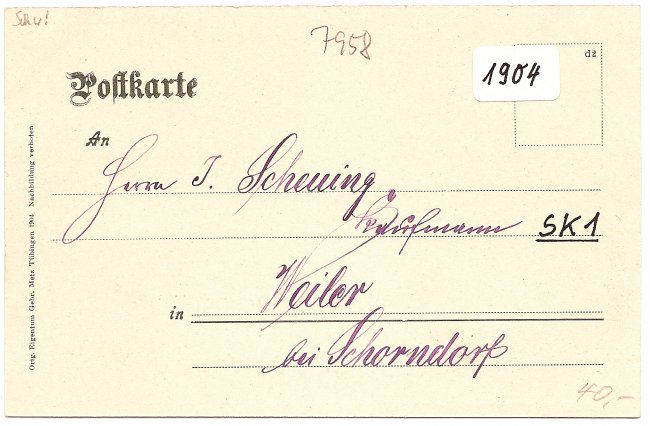 Schw!
7958
1904
d2
Postkarte
An
Herrn J. Scheuing
Kaufmann
SK1
Weiler
in
bei Schorndorf
40,-
Orig. Eigentum Gebr. Metz Tübingen 1904 Nachbildung verboten